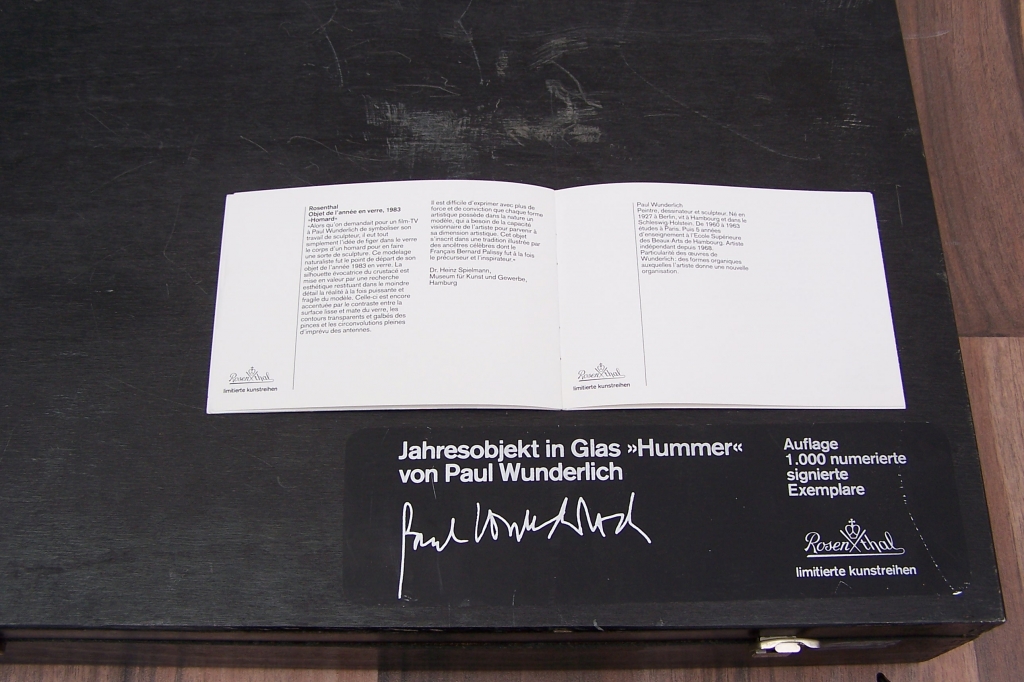 Rosenthal
Objet de l'année en verre, 1983
«Homard»
«Alors qu'on demandait pour un film-TV
à Paul Wunderlich de symboliser son
travail de sculpteur, il eut tout
simplement l'idée de figer dans le verre
le corps d'un homard pour en faire
une sorte de sculpture. Ce modelage
naturaliste fut le point de départ de son
objet de l'année 1983 en verre. La
silhouette évocatrice du crustacé est
mise en valeur par une recherche
esthétique restituant dans le moindre
détail la réalité à la fois puissante et
fragile du modèle. Celle-ci est encore
accentuée par le contraste entre la
surface lisse et mate du verre, les
contours transparents et galbés des
pinces et les circonvolutions pleines
d'imprévu des antennes.
il est difficile d'exprimer avec plus de
force et de conviction que chaque forme
artistique possède dans la nature un
modèle, qui a besoin de la capacité
visionnaire de l'artiste pour parvenir à
sa dimension artistique. Cet objet
s'inscrit dans une tradition illustrée par
des ancêtres célèbres dont le
Français Bernard Palissy fut à la fois
le précurseur et l'inspirateur.»
Dr. Heinz Spielmann,
Museum für Kunst und Gewerbe,
Hamburg
Rosenthal
limitierte kunstreihen
Paul Wunderlich
Peintre, dessinateur et sculpteur. Né en
1927 à Berlin, vit à Hambourg et dans le
Schleswig-Holstein. De 1960 à 1963
études à Paris. Puis 5 années
d'enseignement à l'Ecole Supérieure
des Beaux-Arts de Hambourg. Artiste
indépendant depuis 1968.
Particularité des œuvres de
Wunderlich: des formes organiques
auxquelles l'artiste donne une nouvelle
organisation.
Rosenthal
limitierte kunstreihen
Jahresobjekt in Glas »Hummer«
von Paul Wunderlich
Paul Wunderlich
Auflage
1.000 numerierte
signierte
Exemplare
Rosenthal
limitierte kunstreihen